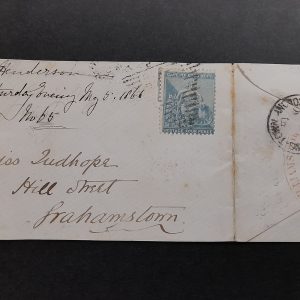 Henderson
Saturday Evening May 5. 1866
No 65
Miss Tudhope
Hill Street
Grahamstown.